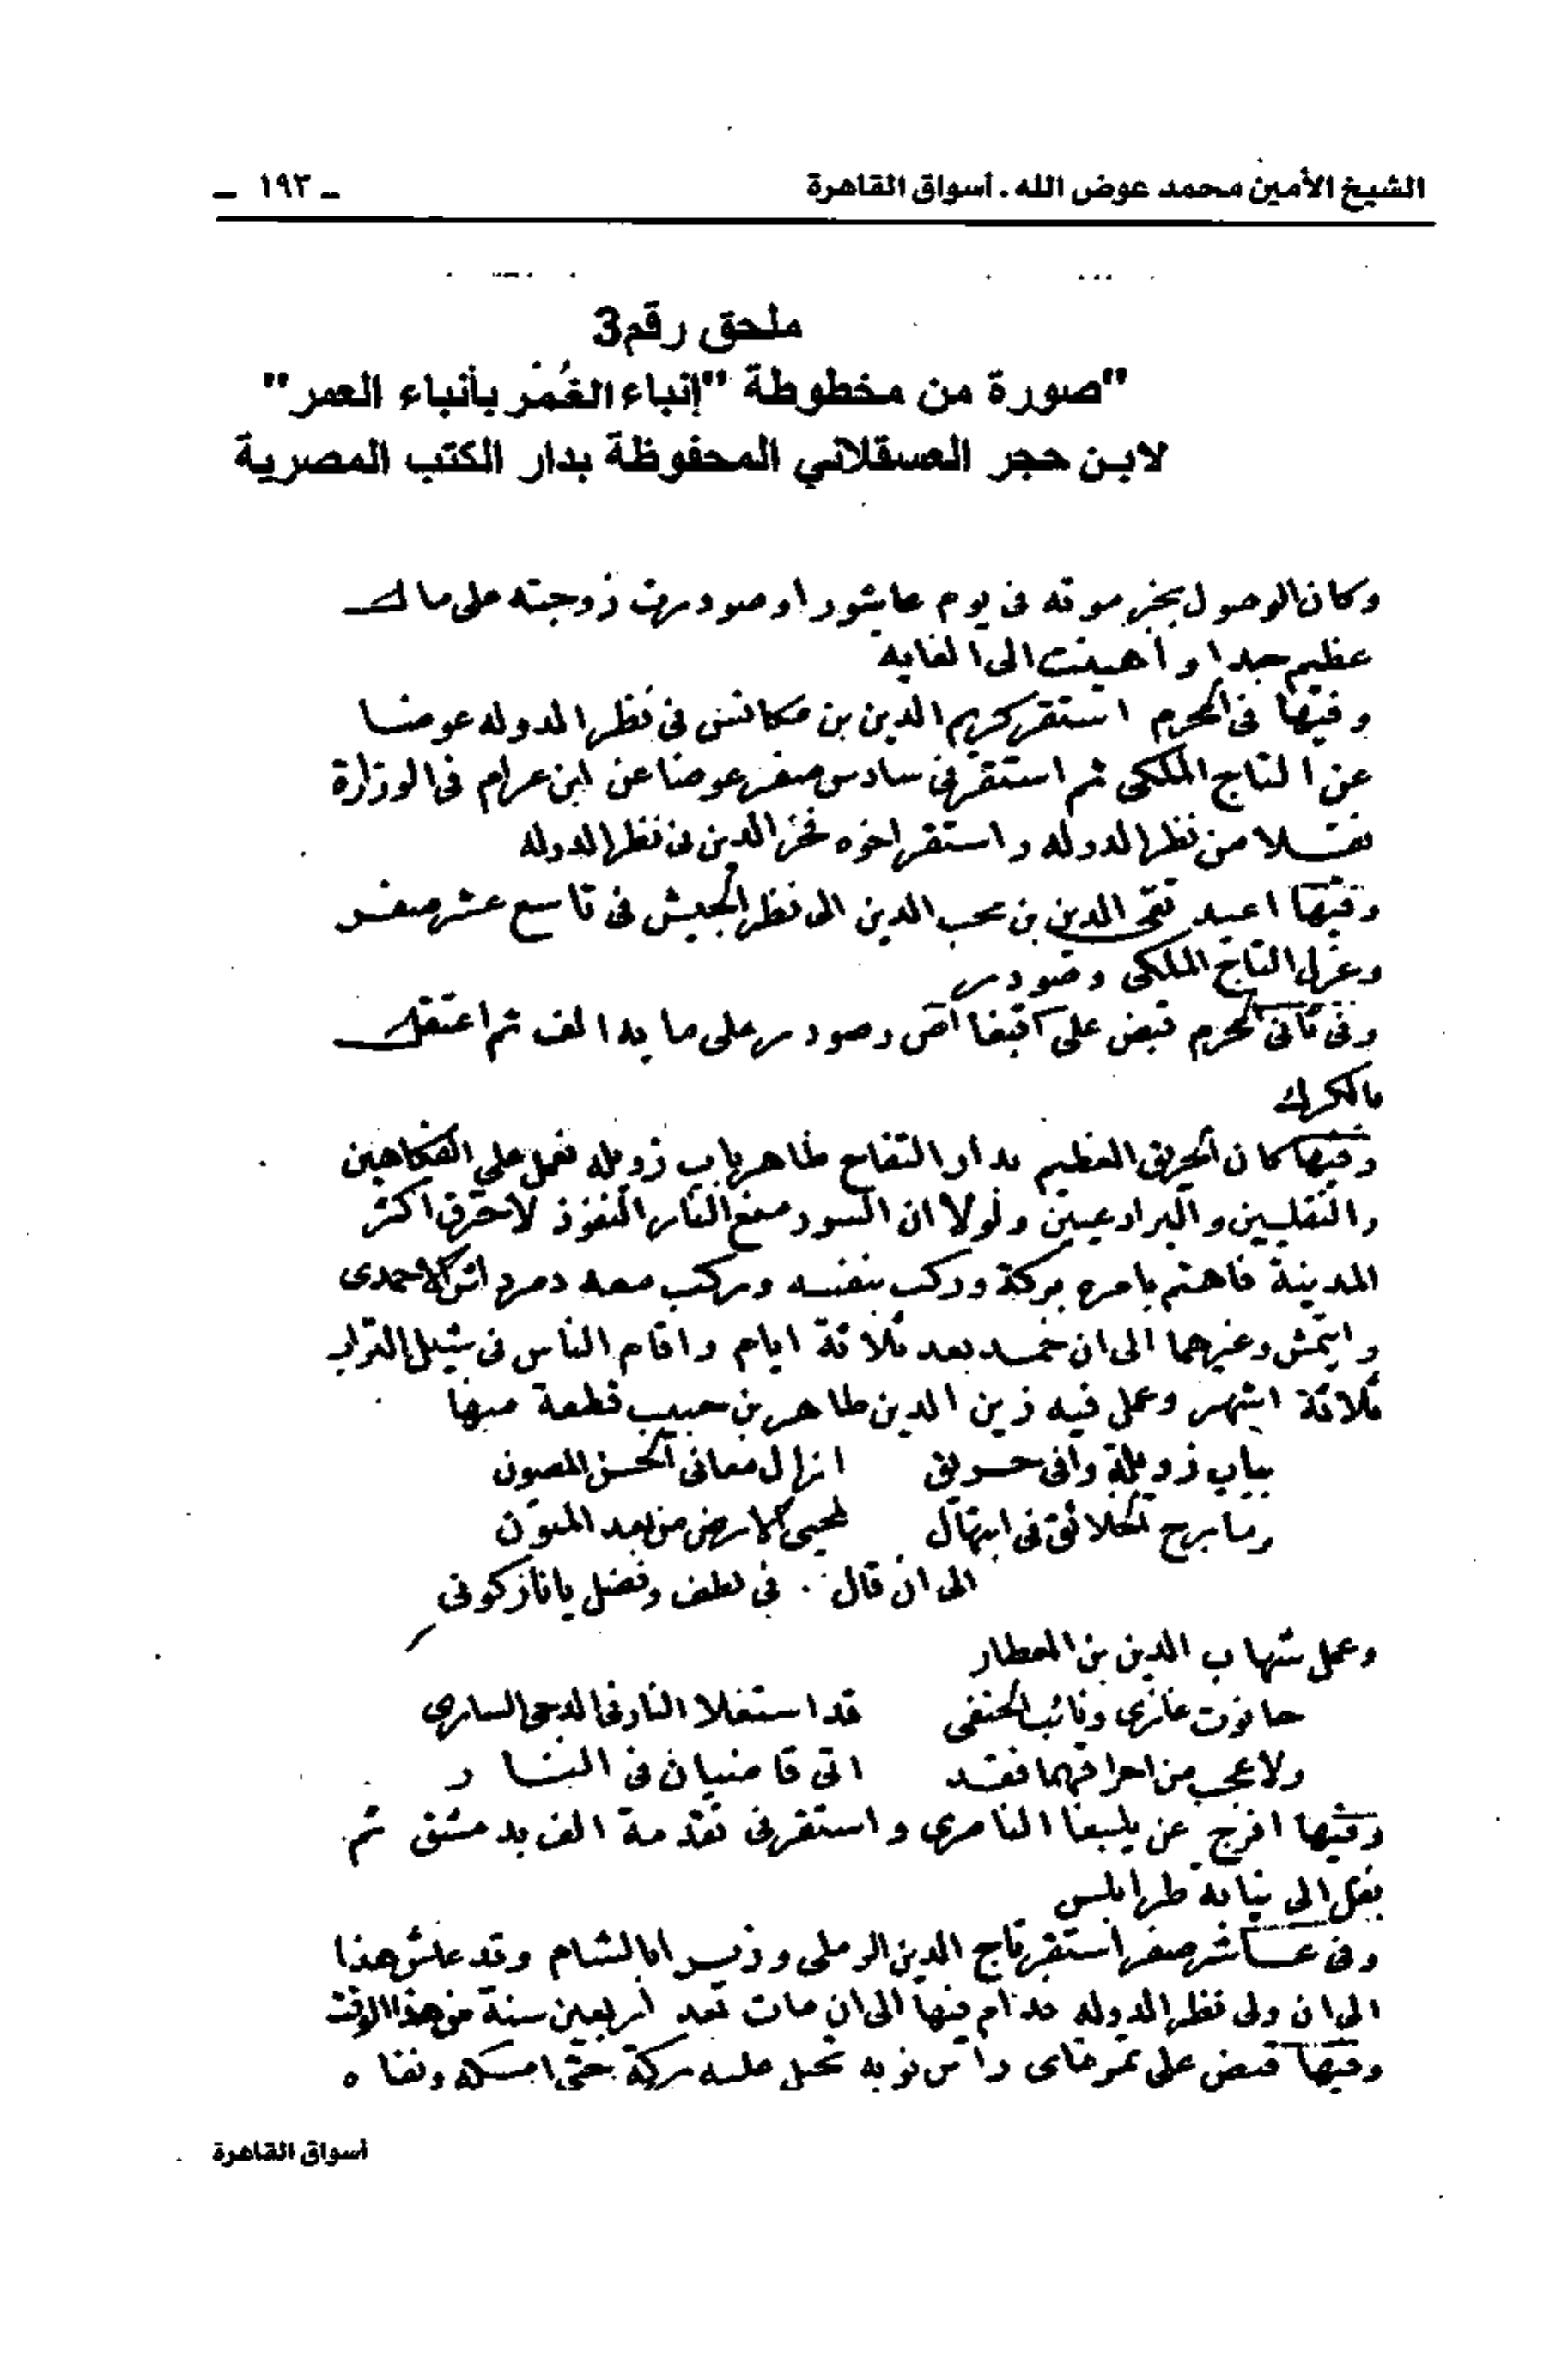 الشيخ الأمين محمد عوض الله . أسواق القاهرة
ـ ١٩٣ ـ
ملحق رقم3
"صورة من مخطوطة "إنباء الغُمْر بأنباء العمر"
لابن حجر العسقلاني المحفوظة بدار الكتب المصرية
وكان الوصول بخبر موته فى يوم عاشورا وصودرت زوجته على مال
عظيم جدا و أهينت الى الغاية
وفيها فى المحرم استقر كريم الدين بن مكانس فى نظر الدوله عوضا
عن التاج الملكى ثم استقر فى سادس صفر عوضا عن ابن عرام فى الوزارة
نقلا من نظر الدوله واستقر اخوه فخر الدين فى نظر الدوله
وفيها اعيد تقى الدين بن محب الدين الى نظر الجيش فى تاسع عشر صفر
وعزل التاج الملكى وصودر
وفى ثانى المحرم قبض على اقبغا آص وصودر على مايه الف ثم اعتقل
بالكرك
وفيها كان الحريق العظيم بدار التفاح ظاهر باب زويله فعمل على الفكاهين
والنقليين والبرادعيين ولولا ان السور منع النار النفوذ لاحترق اكثر
المدينة فاهتم بامره بركة وركب بنفسه وركب معه دمرداش الاحمدى
وايتمش وغيرهما الى ان خمد بعد ثلاثة ايام واقام الناس فى شيل التراب
ثلاثة اشهر وعمل فيه زين الدين طاهر بن حبيب قطعة منها
بباب زويلة وافى حريق ازال معانى الحسن المصون
وما برح الخلائق فى ابتهال لمحيى الارض من بعد المنون
الى ان قال . فى لطف وفضل يا نار كونى
وعمل شهاب الدين بن العطار
حانوت غازى ونائب الحنفى قد استغلا النار فى الدجى السارى
ولا عجب من احراقهما فقد اتى قاضيان فى النار
وفيها افرج عن يلبغا الناصرى واستقر فى تقدمة الف بدمشق ثم
نقل الى نيابة طرابلس
وفى عاشر صفر استقر تاج الدين الرملى وزيرا بالشام وقد عاش هذا
الى ان ولى نظر الدوله فدام فيها الى ان مات بعد اربعين سنة من هذا الوقت
وفيها قبض على تمرباى راس نوبه تحيل عليه بركة حتى امسكه ونفاه
أسواق القاهرة